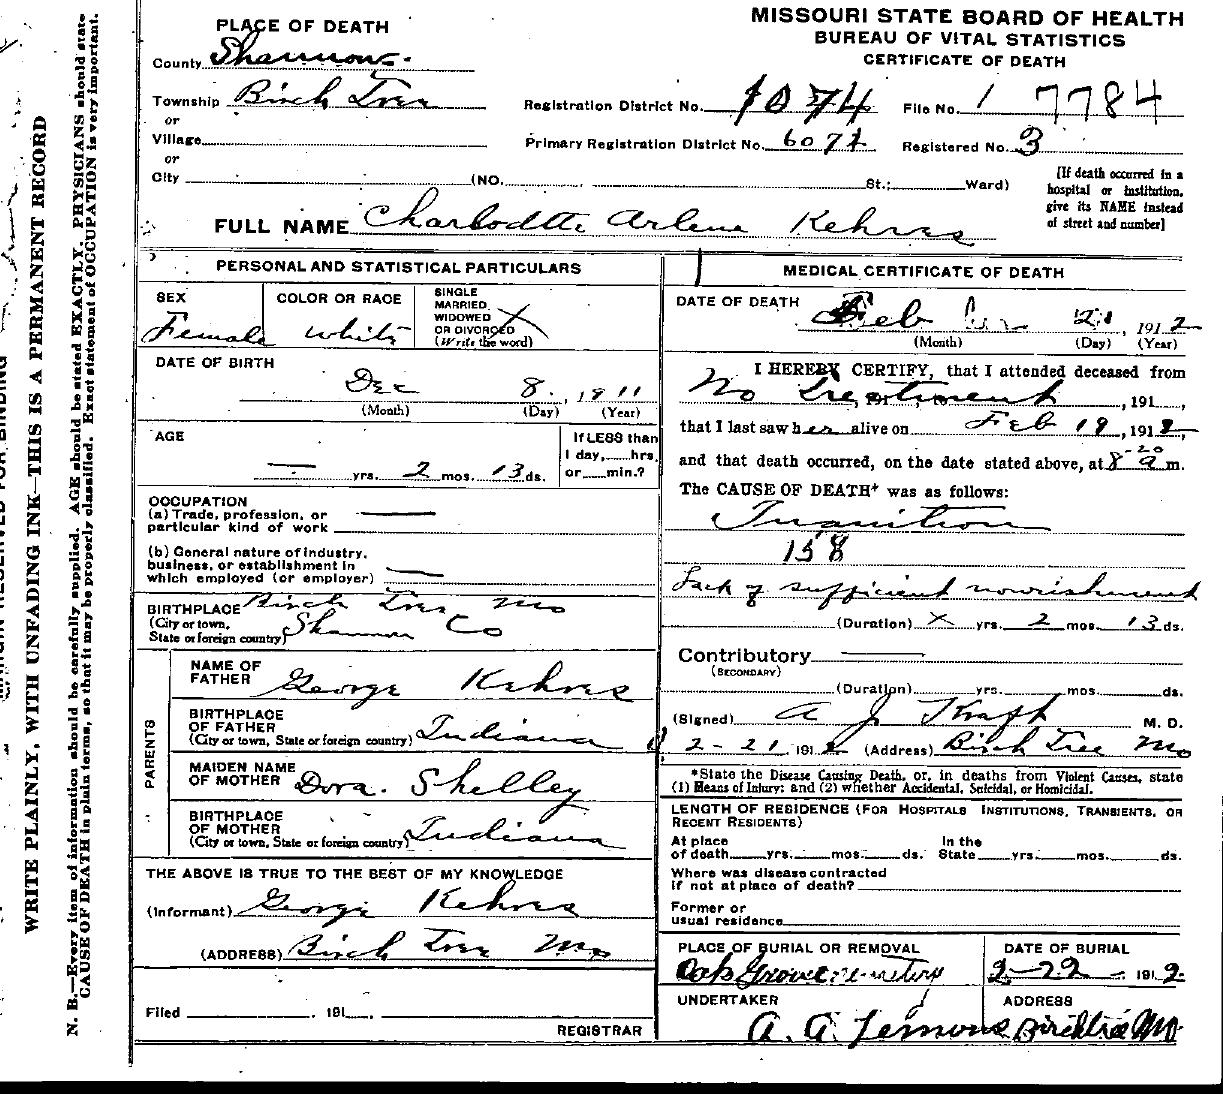 MISSOURI STATE BOARD OF HEALTH
BUREAU OF VITAL STATISTICS
CERTIFICATE OF DEATH
PLACE OF DEATH
County Shannon.
Township Birch Tree
or
Village
or
City (NO. St.; Ward)
Registration District No. 1074 File No. 7784
Primary Registration District No. 6071 Registered No. 3
[If death occurred in a
hospital or institution,
give its NAME instead
of street and number]
FULL NAME Charlodtte Arlene Kehres
PERSONAL AND STATISTICAL PARTICULARS
SEX
Female
COLOR OR RACE
White
SINGLE
MARRIED
WIDOWED
OR DIVORCED
(Write the word)
DATE OF BIRTH
Dec 8. 1911
(Month) (Day) (Year)
AGE
— yrs. 2 mos. 13 ds.
If LESS than
1 day, hrs.
or min.?
OCCUPATION
(a) Trade, profession, or
particular kind of work —
(b) General nature of industry,
business, or establishment in
which employed (or employer) —
BIRTHPLACE Birch Tree Mo
(City or town,
State or foreign country) Shannon Co
PARENTS
NAME OF
FATHER George Kehres
BIRTHPLACE
OF FATHER
(City or town, State or foreign country) Indiana
MAIDEN NAME
OF MOTHER Dora. Shelley
BIRTHPLACE
OF MOTHER
(City or town, State or foreign country) Indiana
THE ABOVE IS TRUE TO THE BEST OF MY KNOWLEDGE
(Informant) George Kehres
(ADDRESS) Birch Tree Mo
Filed , 191 ,
REGISTRAR
MEDICAL CERTIFICATE OF DEATH
DATE OF DEATH Feb 21, 1912
(Month) (Day) (Year)
I HEREBY CERTIFY, that I attended deceased from
No treatment , 191 ,
that I last saw her alive on Feb 19, 1912,
and that death occurred, on the date stated above, at 8-20 a m.
The CAUSE OF DEATH* was as follows:
Inanition
158
Lack of sufficient nourishment
(Duration) X yrs. 2 mos. 13 ds.
Contributory —
(SECONDARY)
(Duration) yrs. mos. ds.
(Signed) A J Kraft M. D.
2-21 1912 (Address) Birch Tree Mo
*State the Disease Causing Death, or, in deaths from Violent Causes, state
(1) Means of Injury; and (2) whether Accidental, Suicidal, or Homicidal.
LENGTH OF RESIDENCE (FOR HOSPITALS INSTITUTIONS, TRANSIENTS, OR
RECENT RESIDENTS)
At place In the
of death yrs. mos. ds. State yrs. mos. ds.
Where was disease contracted
if not at place of death?
Former or
usual residence
PLACE OF BURIAL OR REMOVAL
Oak Grove cemetery
DATE OF BURIAL
2-22 1912.
UNDERTAKER
A. A Lemons
ADDRESS
Birchtree Mo
WRITE PLAINLY, WITH UNFADING INK—THIS IS A PERMANENT RECORD
N. B.—Every item of information should be carefully supplied. AGE should be stated EXACTLY. PHYSICIANS should state
CAUSE OF DEATH in plain terms, so that it may be properly classified. Exact statement of OCCUPATION is very important.